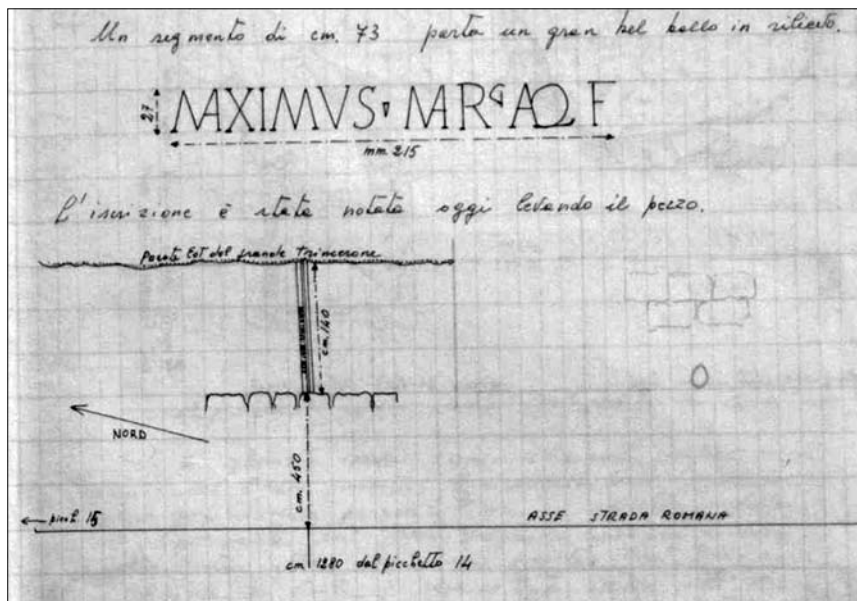 Un segmento di cm. 73 porta un gran bel bollo in rilievo.
27
MXIMVS ▾ MR AQ F
mm. 215
L'iscrizione è stata notata oggi levando il pezzo.
Parete Est del grande trincerone
cm. 140
NORD
cm. 450
← picch. 15
ASSE STRADA ROMANA
cm 1280 dal picchetto 14